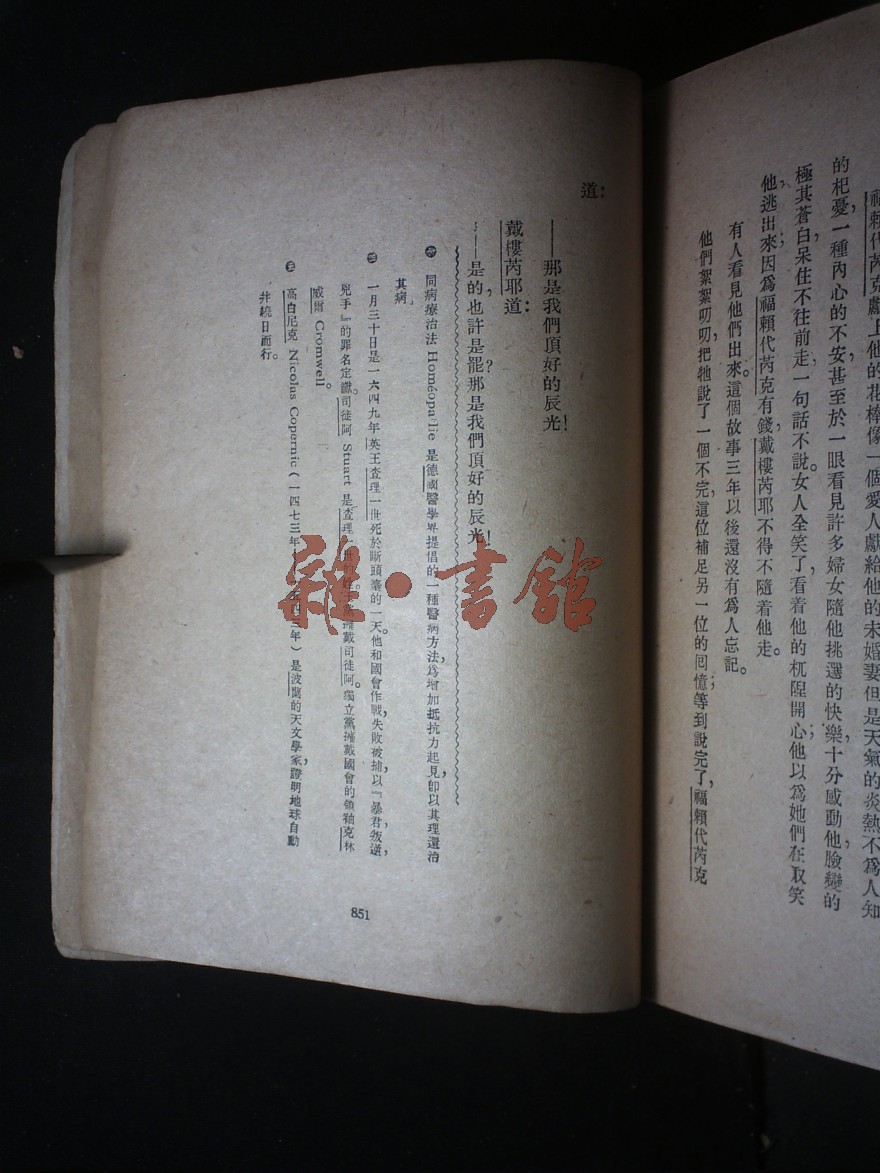 福賴代芮克獻上他的花棒，像一個愛人獻給他的未婚妻。但是天氣的炎熱，不爲人知
的杞憂，一種內心的不安，甚至於一眼看見許多婦女隨他挑選的快樂，十分感動他；臉變的
極其蒼白，呆住不往前走，一句話不說。女人全笑了，看着他的杌隉開心；他以爲她們在取笑
他，逃出來；因爲福賴代芮克有錢，戴樓芮耶不得不隨着他走。
有人看見他們出來。這個故事三年以後還沒有爲人忘記。
他們絮絮叨叨，把牠說了一個不完，這位補足另一位的回憶；等到說完了，福賴代芮克
道：
——那是我們頂好的辰光！
戴樓芮耶道：
——是的，也許是罷？那是我們頂好的辰光！
同病療治法 Homéopathie 是德國醫學界提倡的一種醫病方法，爲增加抵抗力起見，卽以其理還治
其病。
一月三十日是一六四九年英王查理一世死於斷頭臺的一天。他和國會作戰，失敗被捕，以『暴君，叛逆，
兇手』的罪名定讞。司徒阿 Stuart 是查理一世的姓。擁戴司徒阿。獨立黨擁戴國會的領袖克林
威爾 Cromwell。
高白尼克 Nicolas Copernic（一四七三年 一五四三年）是波蘭的天文學家，證明地球自動
井繞日而行。
851
雜·書館